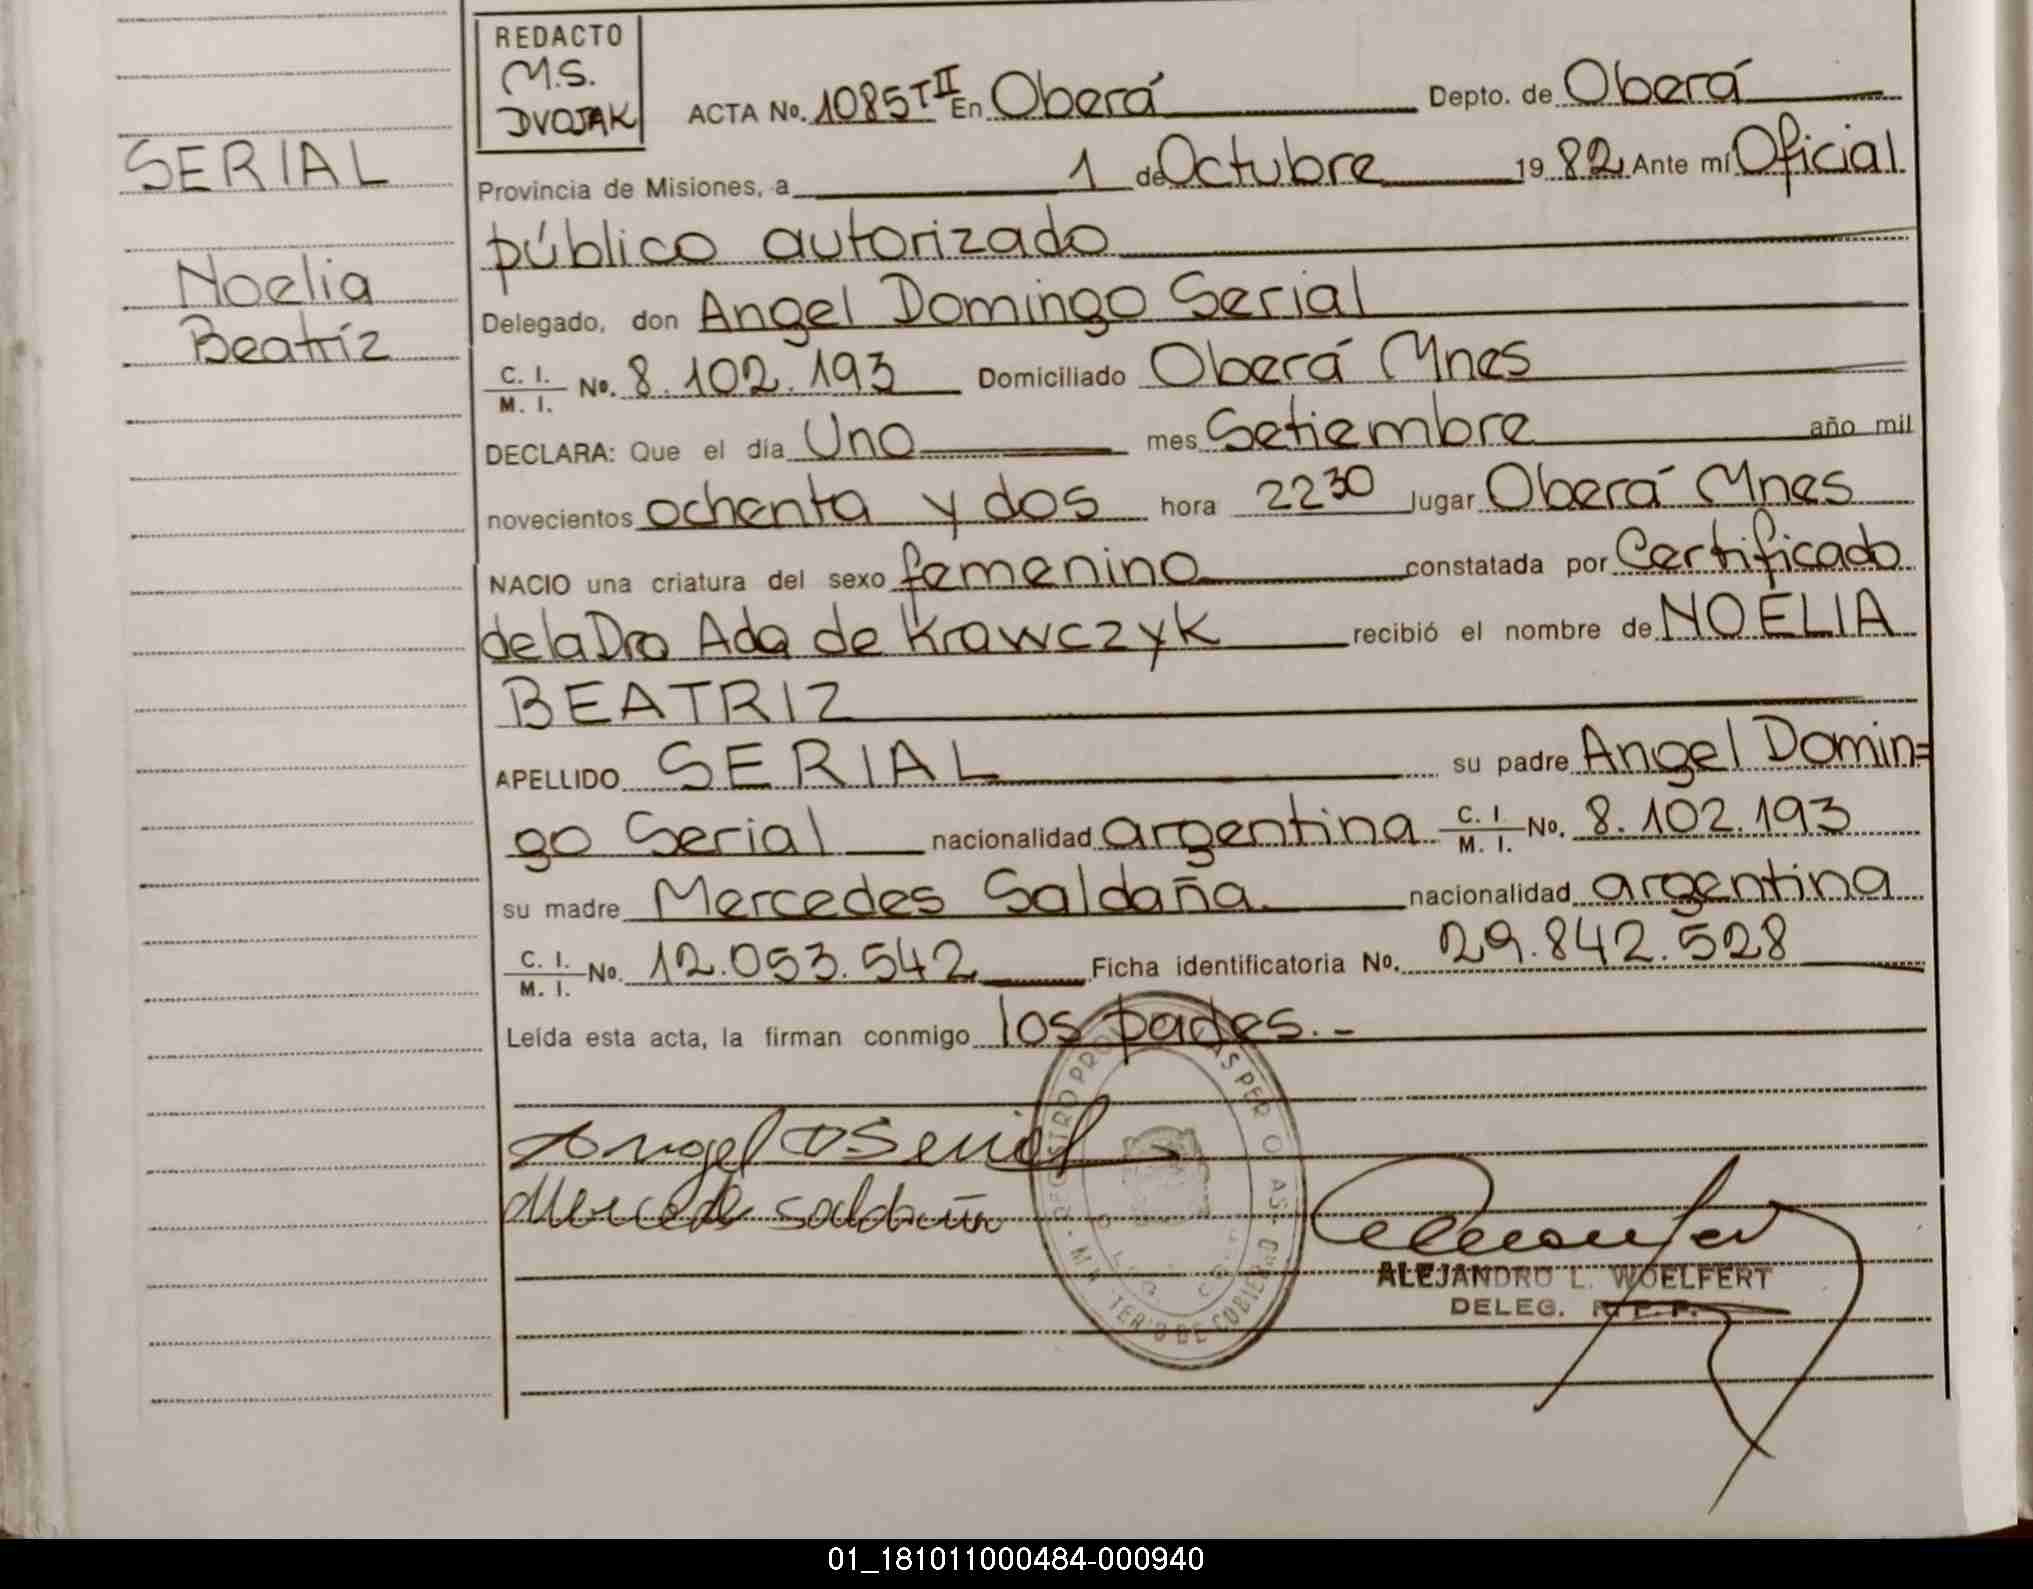 REDACTO
M.S.
DVOJAK
ACTA No. 1085 T II En Oberá Depto. de Oberá
SERIAL
Noelia
Beatríz
Provincia de Misiones, a 1 de Octubre 19 82 Ante mí Oficial
público autorizado
Delegado, don Angel Domingo Serial
C. I. / M. I. No. 8.102.193 Domiciliado Oberá Mnes
DECLARA: Que el día Uno mes Setiembre año mil
novecientos ochenta y dos hora 22 30 lugar Oberá Mnes
NACIO una criatura del sexo femenino constatada por Certificado
de la Dra Ada de Krawczyk recibió el nombre de NOELIA
BEATRIZ
APELLIDO SERIAL su padre Angel Domin=
go Serial nacionalidad argentina C. I. / M. I. No. 8.102.193
su madre Mercedes Saldaña nacionalidad argentina
C. I. / M. I. No. 12.053.542 Ficha identificatoria No. 29.842.528
Leída esta acta, la firman conmigo los pades.-
Angel D Serial
Mercede saldaña
ALEJANDRO L. WOELFERT
DELEG.
01_181011000484-000940